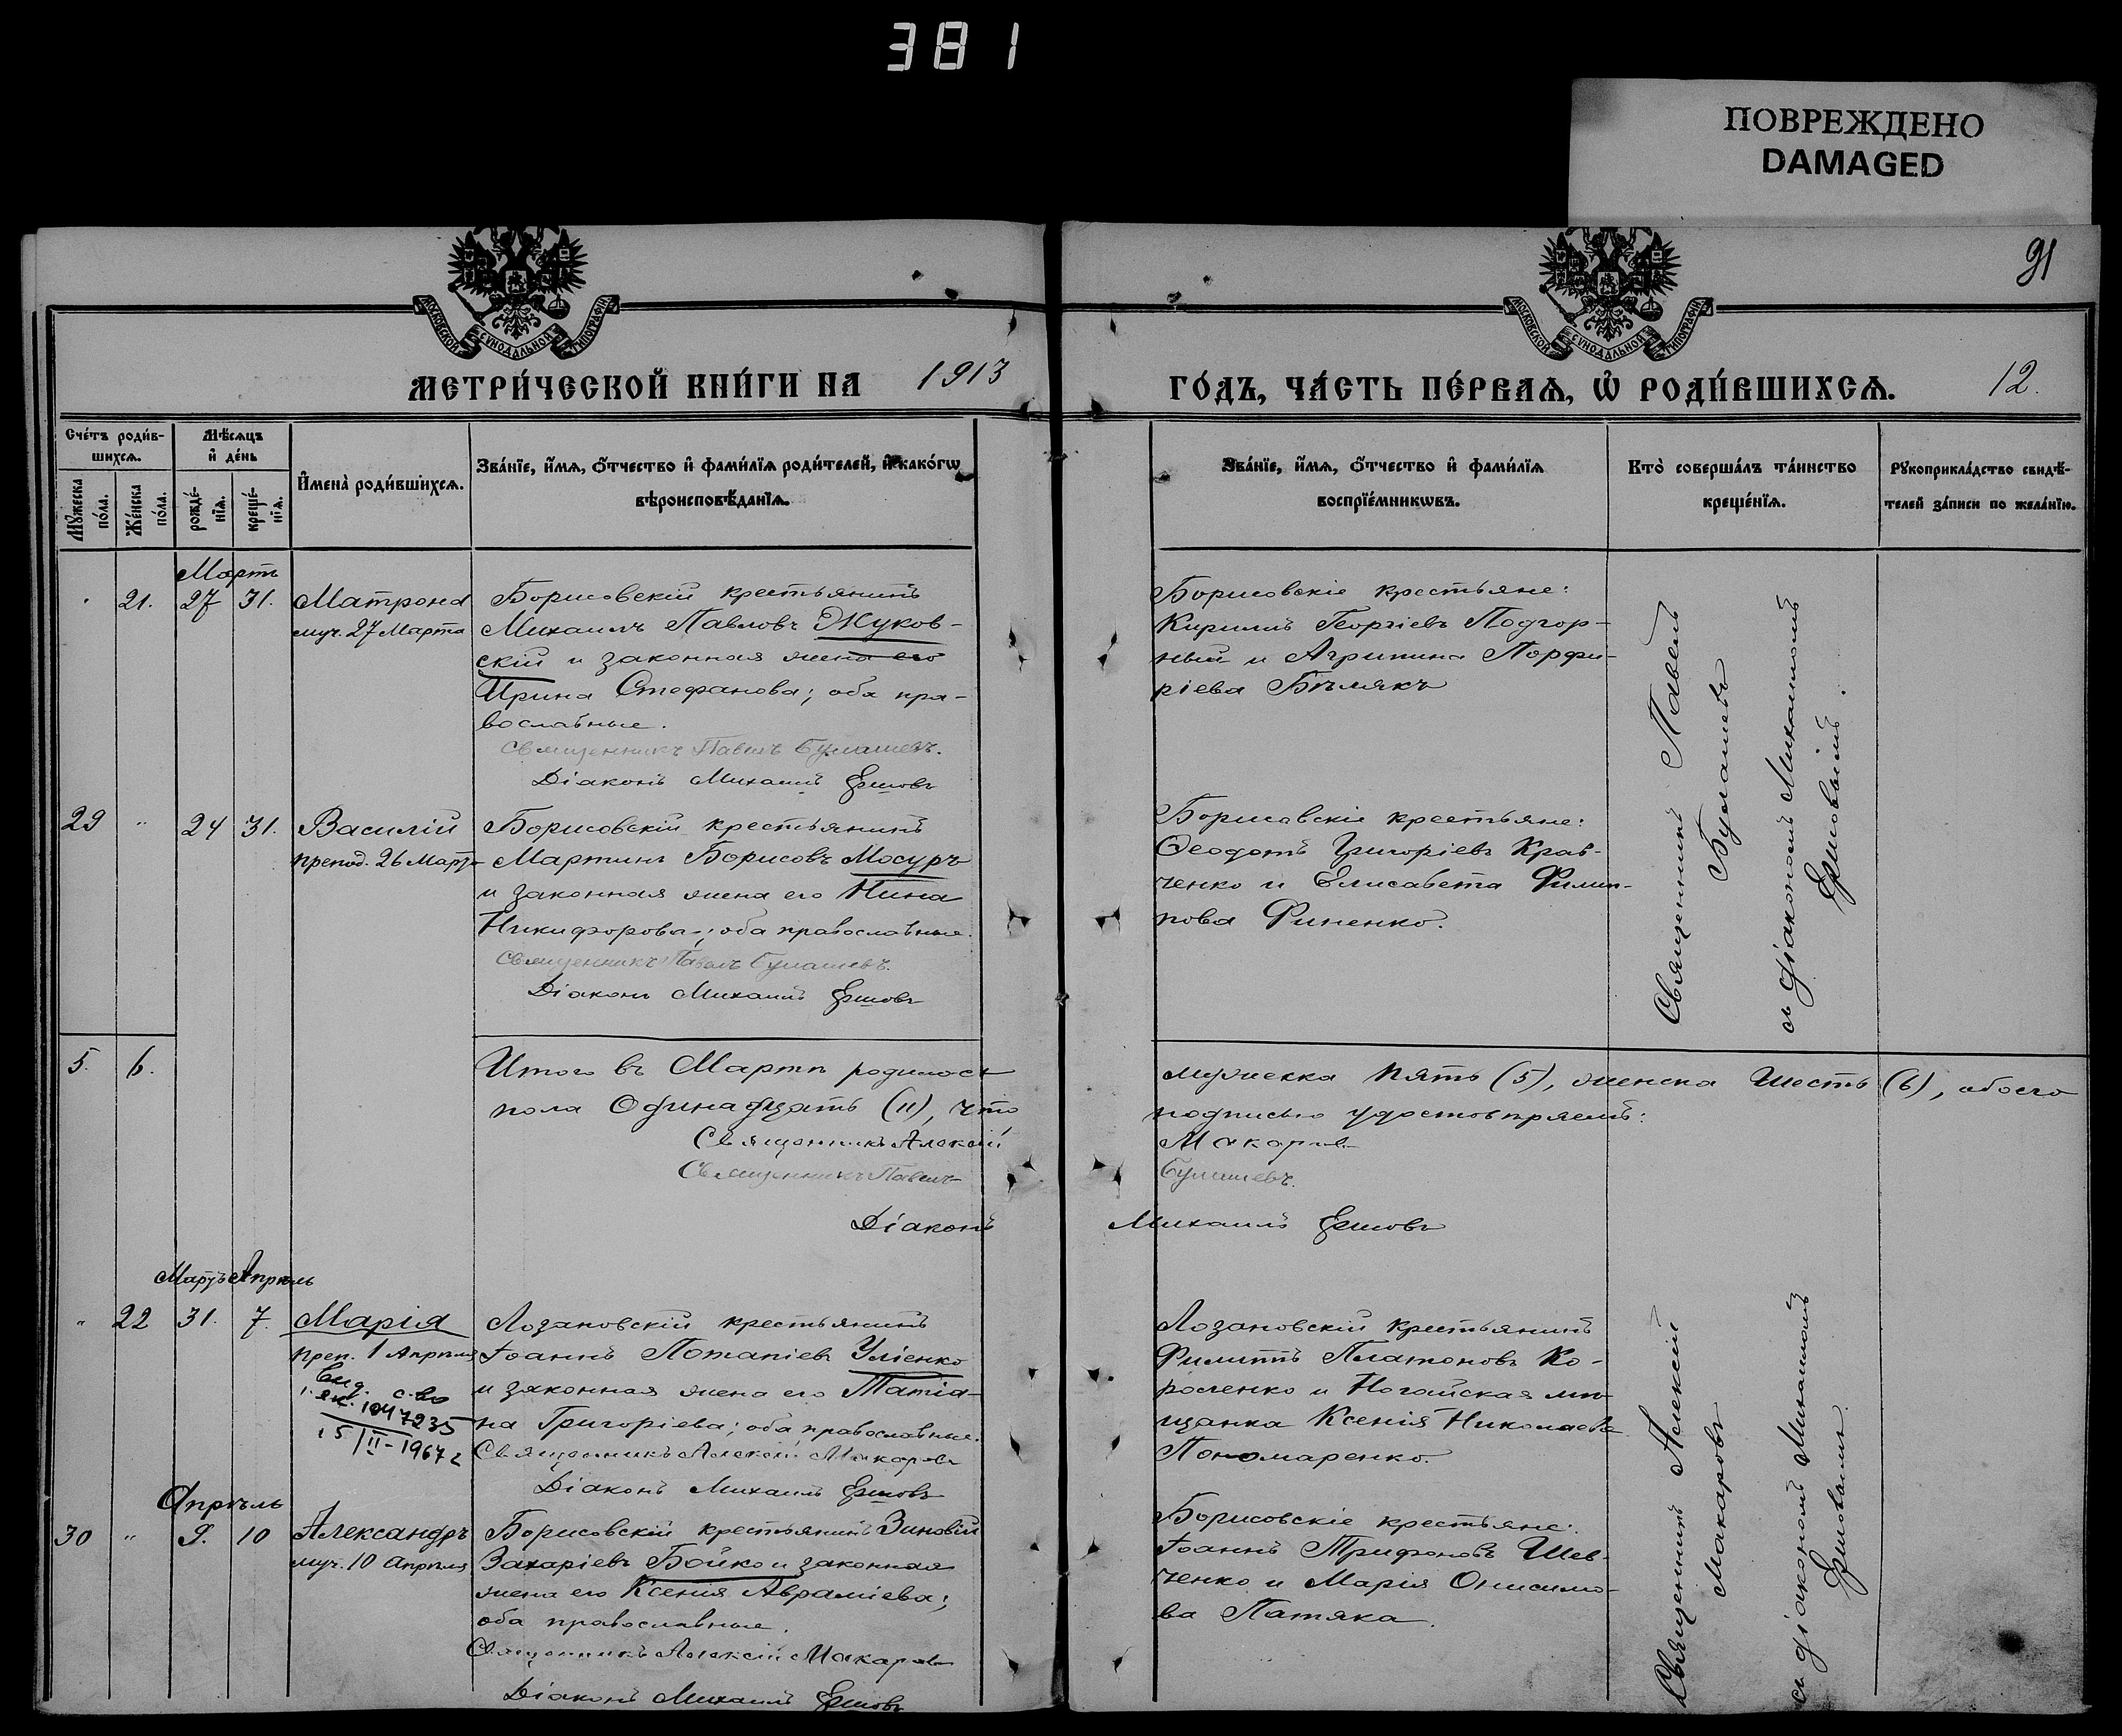 381
ПОВРЕЖДЕНО
DAMAGED
91
МОСКОВСКОЙ СѴНОДАЛЬНОЙ ТИПОГРАФІИ
МОСКОВСКОЙ СѴНОДАЛЬНОЙ ТИПОГРАФІИ
МЕТРИ́ЧЕСКОЙ КНИ́ГИ НА 1913
ГО́ДЪ, ЧА́СТЬ ПЕ́РВАѦ, Ѡ҆ РОДИ́ВШИХСѦ. 12.
Сче́тъ роди́в-
шихсѧ.
Мꙋ́жеска
по́ла.
Же́нска
по́ла.
Мѣ́сѧцъ
и҆ де́нь
рожде́-
нїѧ.
креще́-
нїѧ.
И҆мена̀ роди́вшихсѧ.
Зва́нїе, и҆́мѧ, о҆́тчество и҆ фами́лїѧ роди́телей, и҆ како́гѡ
вѣроисповѣ́данїѧ.
Зва́нїе, и҆́мѧ, о҆́тчество и҆ фами́лїѧ
воспрїе́мникѡвъ.
Кто̀ соверша́лъ та́инство
креще́нїѧ.
Рꙋкоприкла́дство свидѣ́-
телей за́писи по жела́нїю.
Мартъ
21. 27 31. Матрона
муч. 27 Марта
Борисовскій крестьянинъ
Михаилъ Павловъ Жуков-
скій и законная жена его
Ирина Стефанова; оба пра-
вославные.
Священникъ Павелъ Булашевъ.
Діаконъ Михаилъ Ершовъ
Борисовскіе крестьяне:
Кириллъ Георгіевъ Подгор-
ный и Агрипина Порфи-
ріева Бѣлякъ
Священникъ Павелъ
Булашевъ
съ діакономъ Михаиломъ
Ершовымъ.
29 " 24 31. Василій
препод. 26 Марта
Борисовскій крестьянинъ
Мартинъ Борисовъ Мосуръ
и законная жена его Нина
Никифорова; оба православные.
Священникъ Павелъ Булашевъ.
Діаконъ Михаилъ Ершовъ
Борисовскіе крестьяне:
Ѳеодотъ Григоріевъ Крав-
ченко и Елисавета Филип-
пова Риненко.
5. 6.
Итого въ Мартѣ родилось мужеска пять (5), женска шесть (6), обоего
пола одинадцать (11), что подписью удостовѣряемъ:
Священникъ Алексій Макаровъ
Священникъ Павелъ Булашевъ.
Діаконъ Михаилъ Ершовъ
Мартъ Апрѣль
" 22 31. 7. Марія
преп. 1 Апрѣля
выд. с-во
1047235
15/II-1967 г
Лозановскій крестьянинъ
Іоаннъ Потапіевъ Уліенко
и законная жена его Татіа-
на Григоріева; оба православные.
Священникъ Алексій Макаровъ
Діаконъ Михаилъ Ершовъ
Лозановскій крестьянинъ
Филиппъ Платоновъ Ко-
роленко и Ногайская мѣ-
щанка Ксенія Николаева
Пономаренко.
Священникъ Алексій
Макаровъ
съ діакономъ Михаиломъ
Ершовымъ.
Апрѣль
30 " 9. 10 Александръ
муч. 10 Апрѣля
Борисовскій крестьянинъ Зиновій
Захаріевъ Бойко и законная
жена его Ксенія Авраміева;
оба православные.
Священникъ Алексій Макаровъ
Діаконъ Михаилъ Ершовъ
Борисовскіе крестьяне:
Іоаннъ Трифоновъ Шев-
ченко и Марія Онисимо-
ва Патяка.